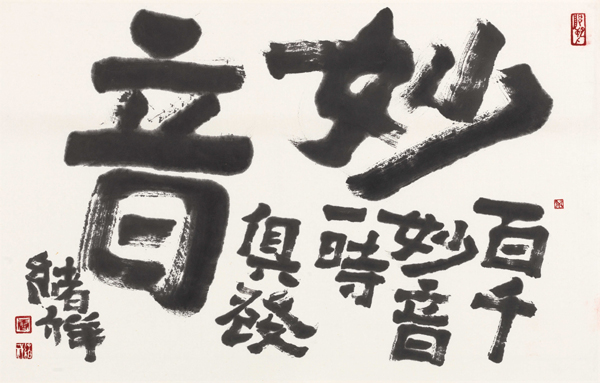 妙音
百千
妙音
一時
俱發
緒祥